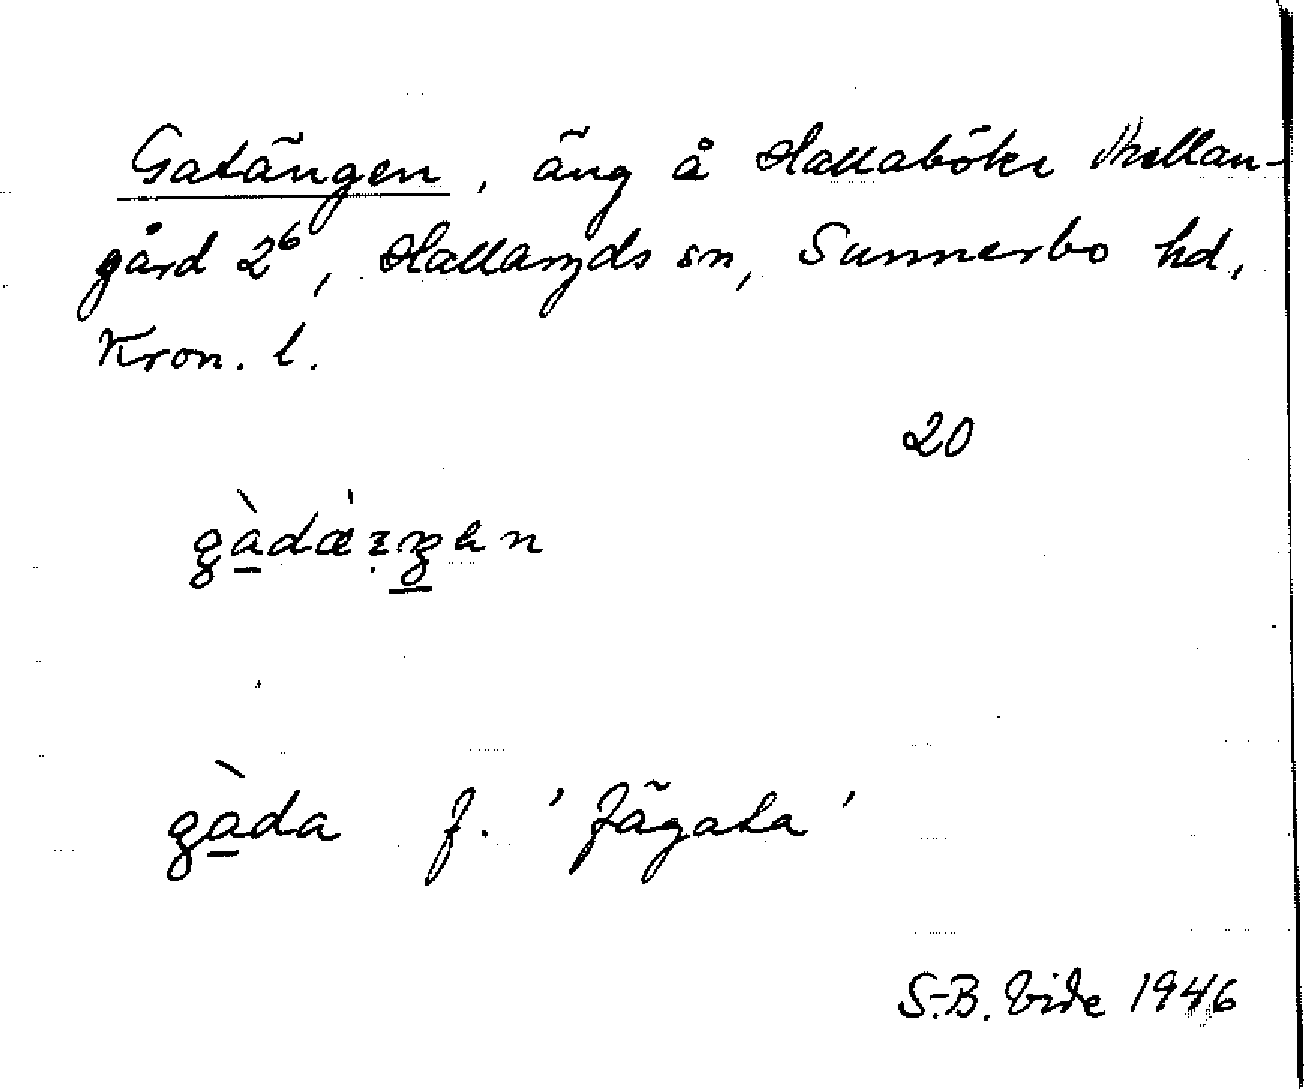 Gatängen, äng å Hallaböke Mellan-
gård 2⁶, Hallaryds sn, Sunnerbo hd,
Kron. l.
20
gàda f. 'fägata'
S.-B. Vide 1946